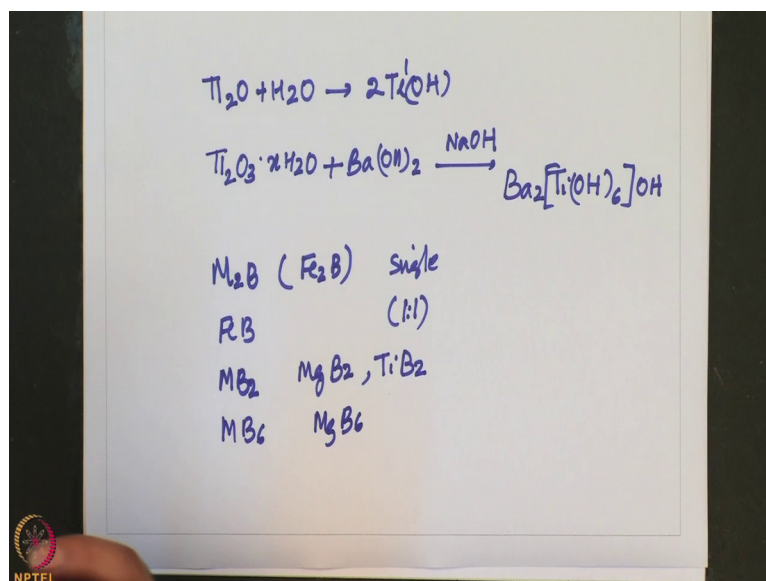 Tl2O + H2O → 2Tl(OH)
Tl2O3·xH2O + Ba(OH)2 NaOH → Ba2[Tl(OH)6]OH
M2B (Fe2B) single
FeB (1:1)
MB2 MgB2, TiB2
MB6 MgB6
NPTEL